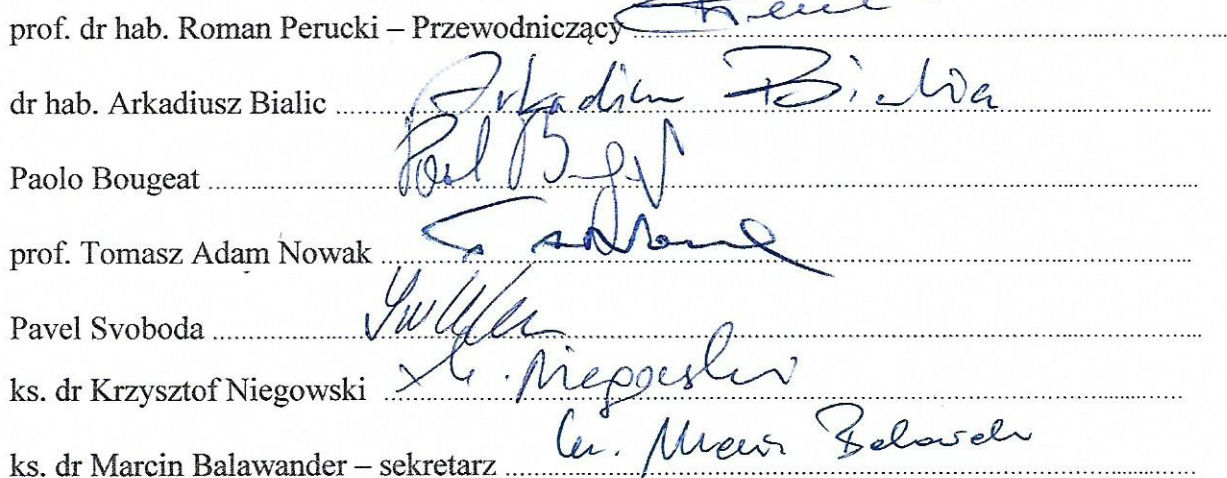 prof. dr hab. Roman Perucki – Przewodniczący
dr hab. Arkadiusz Bialic ........ Arkadiusz Bialic
Paolo Bougeat ........
prof. Tomasz Adam Nowak ........
Pavel Svoboda ........
ks. dr Krzysztof Niegowski ........ K. Niegowski
ks. dr Marcin Balawander – sekretarz ........ ks. Marcin Balawander